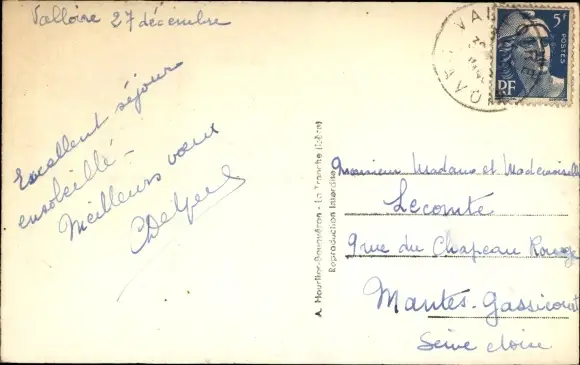 Valloire 27 décembre
Excellent séjour
ensoleillé -
Meilleurs vœux
VALLOIRE
SAVOIE
5F
POSTES
RF
A. Mourlier-Bouquéron - La Tronche (Isère)
Reproduction Interdite
Monsieur Madame et Mademoiselle
Lecomte
9 rue du Chapeau Rouge
Mantes-Gassicourt
Seine et Oise